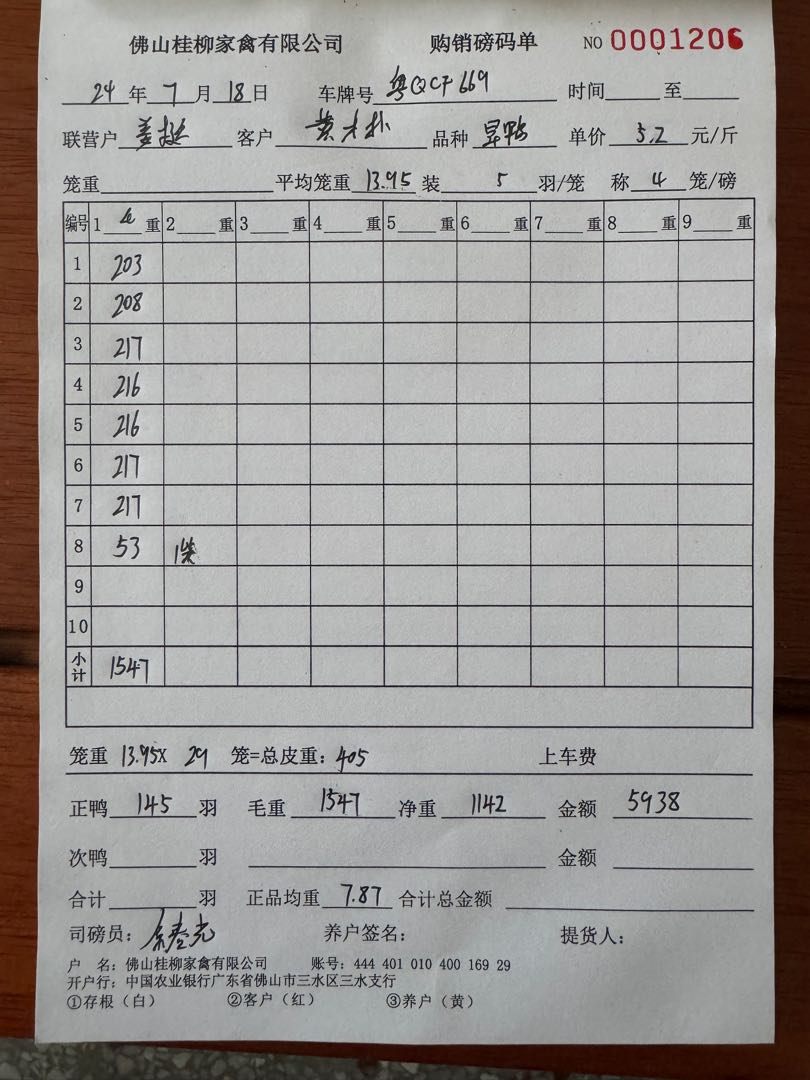 佛山桂柳家禽有限公司 购销磅码单 NO 0001206
24 年 7 月 18 日 车牌号 粤QCF669 时间 至
联营户 姜挺 客户 品种 单价 5.2 元/斤
笼重 平均笼重 13.95 装 5 羽/笼 称 4 笼/磅
编号 1 重 2 重 3 重 4 重 5 重 6 重 7 重 8 重 9 重
1 203
2 208
3 217
4 216
5 216
6 217
7 217
8 53 1
9
10
小计 1547
笼重 13.95X 29 笼=总皮重: 405 上车费
正鸭 145 羽 毛重 1547 净重 1142 金额 5938
次鸭 羽 金额
合计 羽 正品均重 7.87 合计总金额
司磅员: 养户签名: 提货人:
户 名: 佛山桂柳家禽有限公司 账号: 444 401 010 400 169 29
开户行: 中国农业银行广东省佛山市三水区三水支行
①存根(白) ②客户(红) ③养户(黄)